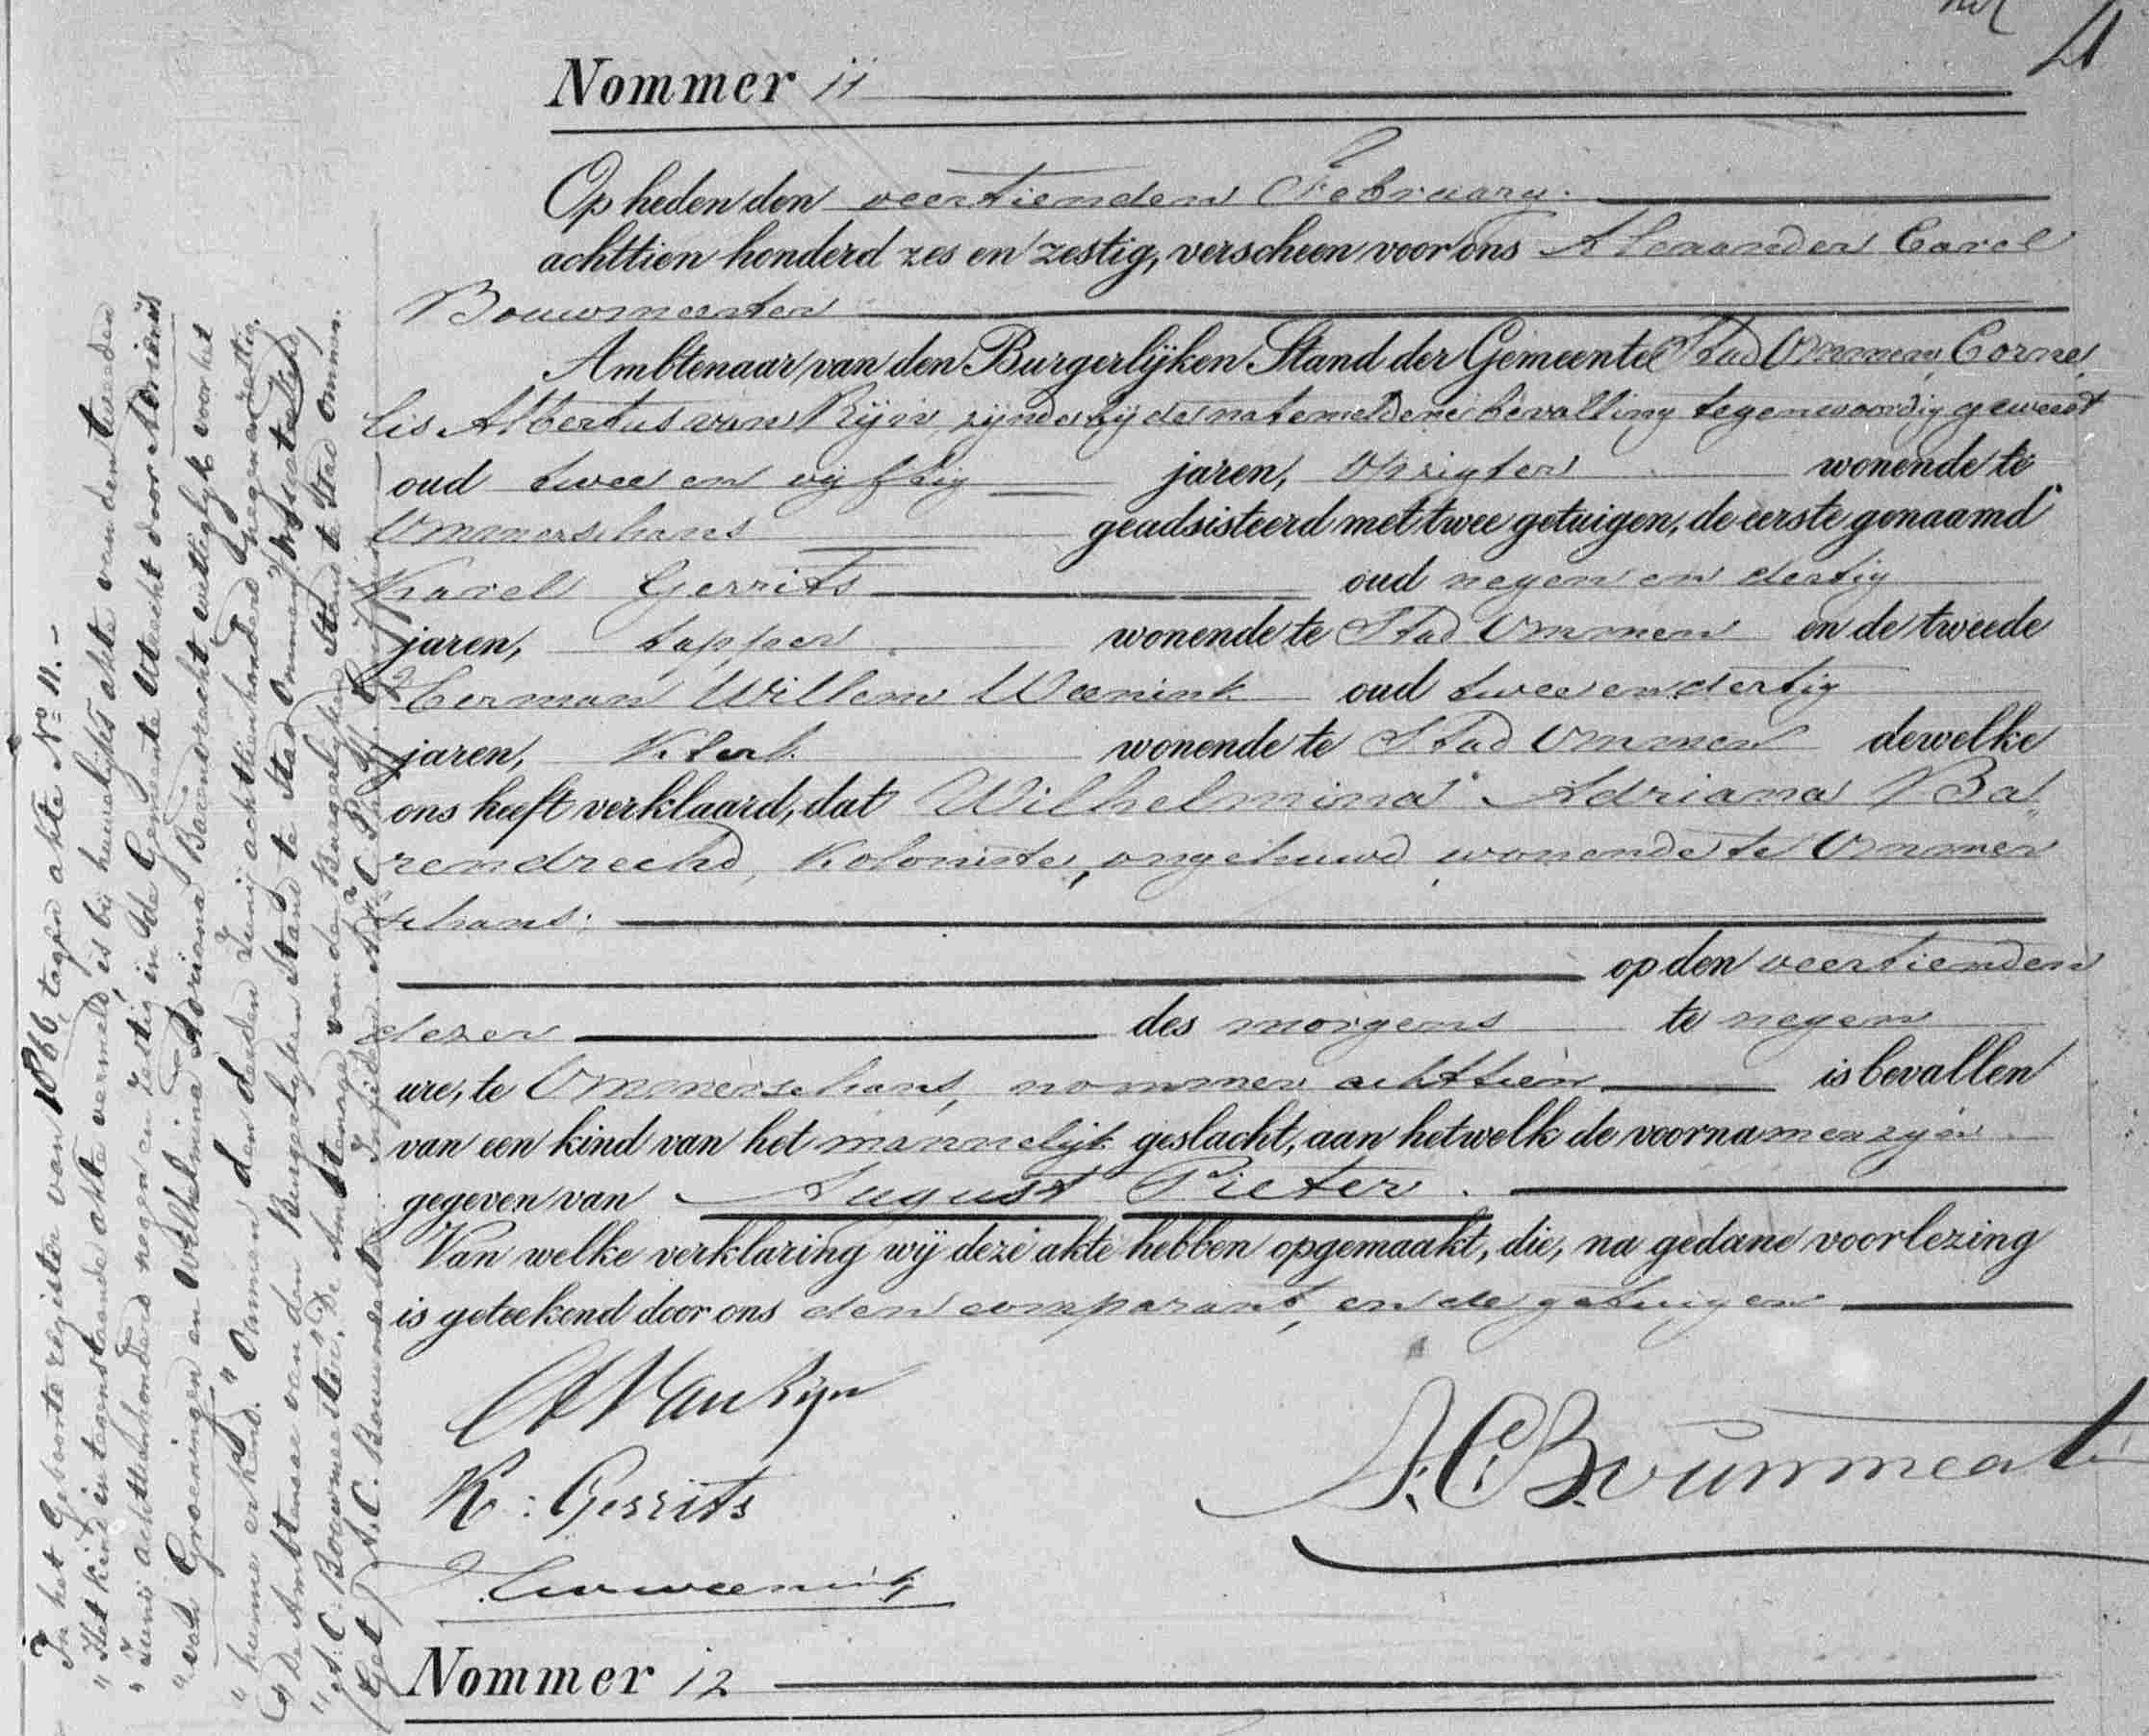 4
Nommer 11
Op heden den veertienden February.
achttien honderd zes en zestig, verscheen voor ons Alexander Carel
Bouwmeester
Ambtenaar van den Burgerlijken Stand der Gemeente Stad Ommen, Corne„
lis Albertus van Rijn, zijnde bij de natemeldene bevalling tegenwoordig geweest
oud twee en vijftig jaren, Opzigter wonende te
Ommerschans geadsisteerd met twee getuigen, de eerste genaamd
Karel Gerrits oud negen en dertig
jaren, tapper wonende te Stad Ommen en de tweede
Herman Willem Weenink oud twee en dertig
jaren, Klerk wonende te Stad Ommen dewelke
ons heeft verklaard, dat Wilhelmina Adriana Ba„
rendrecht, Koloniste, ongehuwd, wonende te Ommer
schans:
op den veertienden
dezer des morgens te negen
ure, te Ommerschans, nommer achttien is bevallen
van een kind van het mannelijk geslacht, aan hetwelk de voornamen zijn
gegeven van August Pieter.
Van welke verklaring wij deze akte hebben opgemaakt, die, na gedane voorlezing
is geteekend door ons den comparant, en de getuigen
CA van Rijn
K: Gerrits
HW Weenink
A.C. Bouwmeester
Nommer 12
In het Geboorte register van 1866, tegen akte No 11.-
„Het kind in taanstaande akte vermeld, is bij huwelijks akte van den tweeden
„Junij achttienhonderd negen en zestig in de Gemeente Utrecht door Adrianus
„van Groeningen en Wilhelmina Adriana Barendrecht wettiglyk voor het
„hunne erkend." „Ommen den derden Junij achttienhonderd negen zestig.
„De Ambtenaar van den Burgerlyken Stand te Stad Ommen, (geteekend)
„A: C: Bouwmeester." De Ambtenaar van de Burgerlyken Stand te Stad Ommen.
(Get) A. C. Bouwmeester